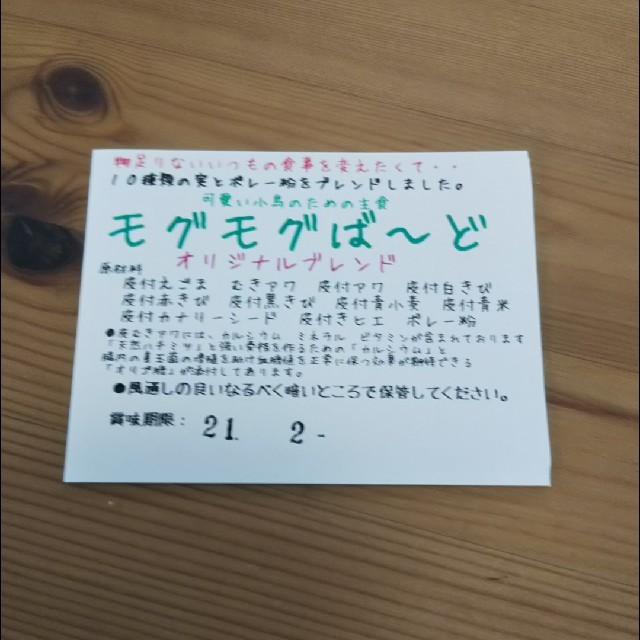 物足りないいつもの食事を変えたくて・・
１０種類の実とボレー粉をブレンドしました。
可愛い小鳥のための主食
モグモグば〜ど
オリジナルブレンド
原材料
皮付えごま むきアワ 皮付アワ 皮付白きび
皮付赤きび 皮付黒きび 皮付青小麦 皮付青米
皮付カナリーシード 皮付きヒエ ボレー粉
●皮むきアワには、カルシウム ミネラル ビタミンが含まれております
「天然ハチミツ」と強い骨格を作るための「カルシウム」と
腸内の善玉菌の増殖を助け血糖値を正常に保つ効果が期待できる
「オリゴ糖」が添付してあります。
●風通しの良いなるべく暗いところで保管してください。
賞味期限： 21. 2-